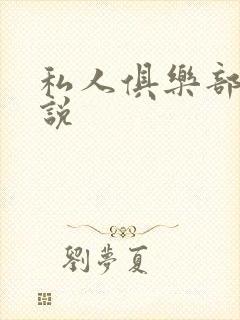 私人俱樂部
說
劉夢夏